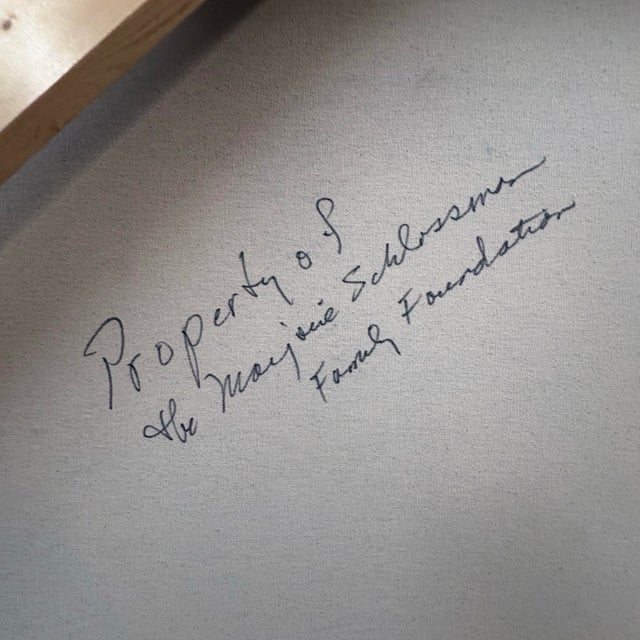 Property of
the Marjorie Schlossman
Family Foundation